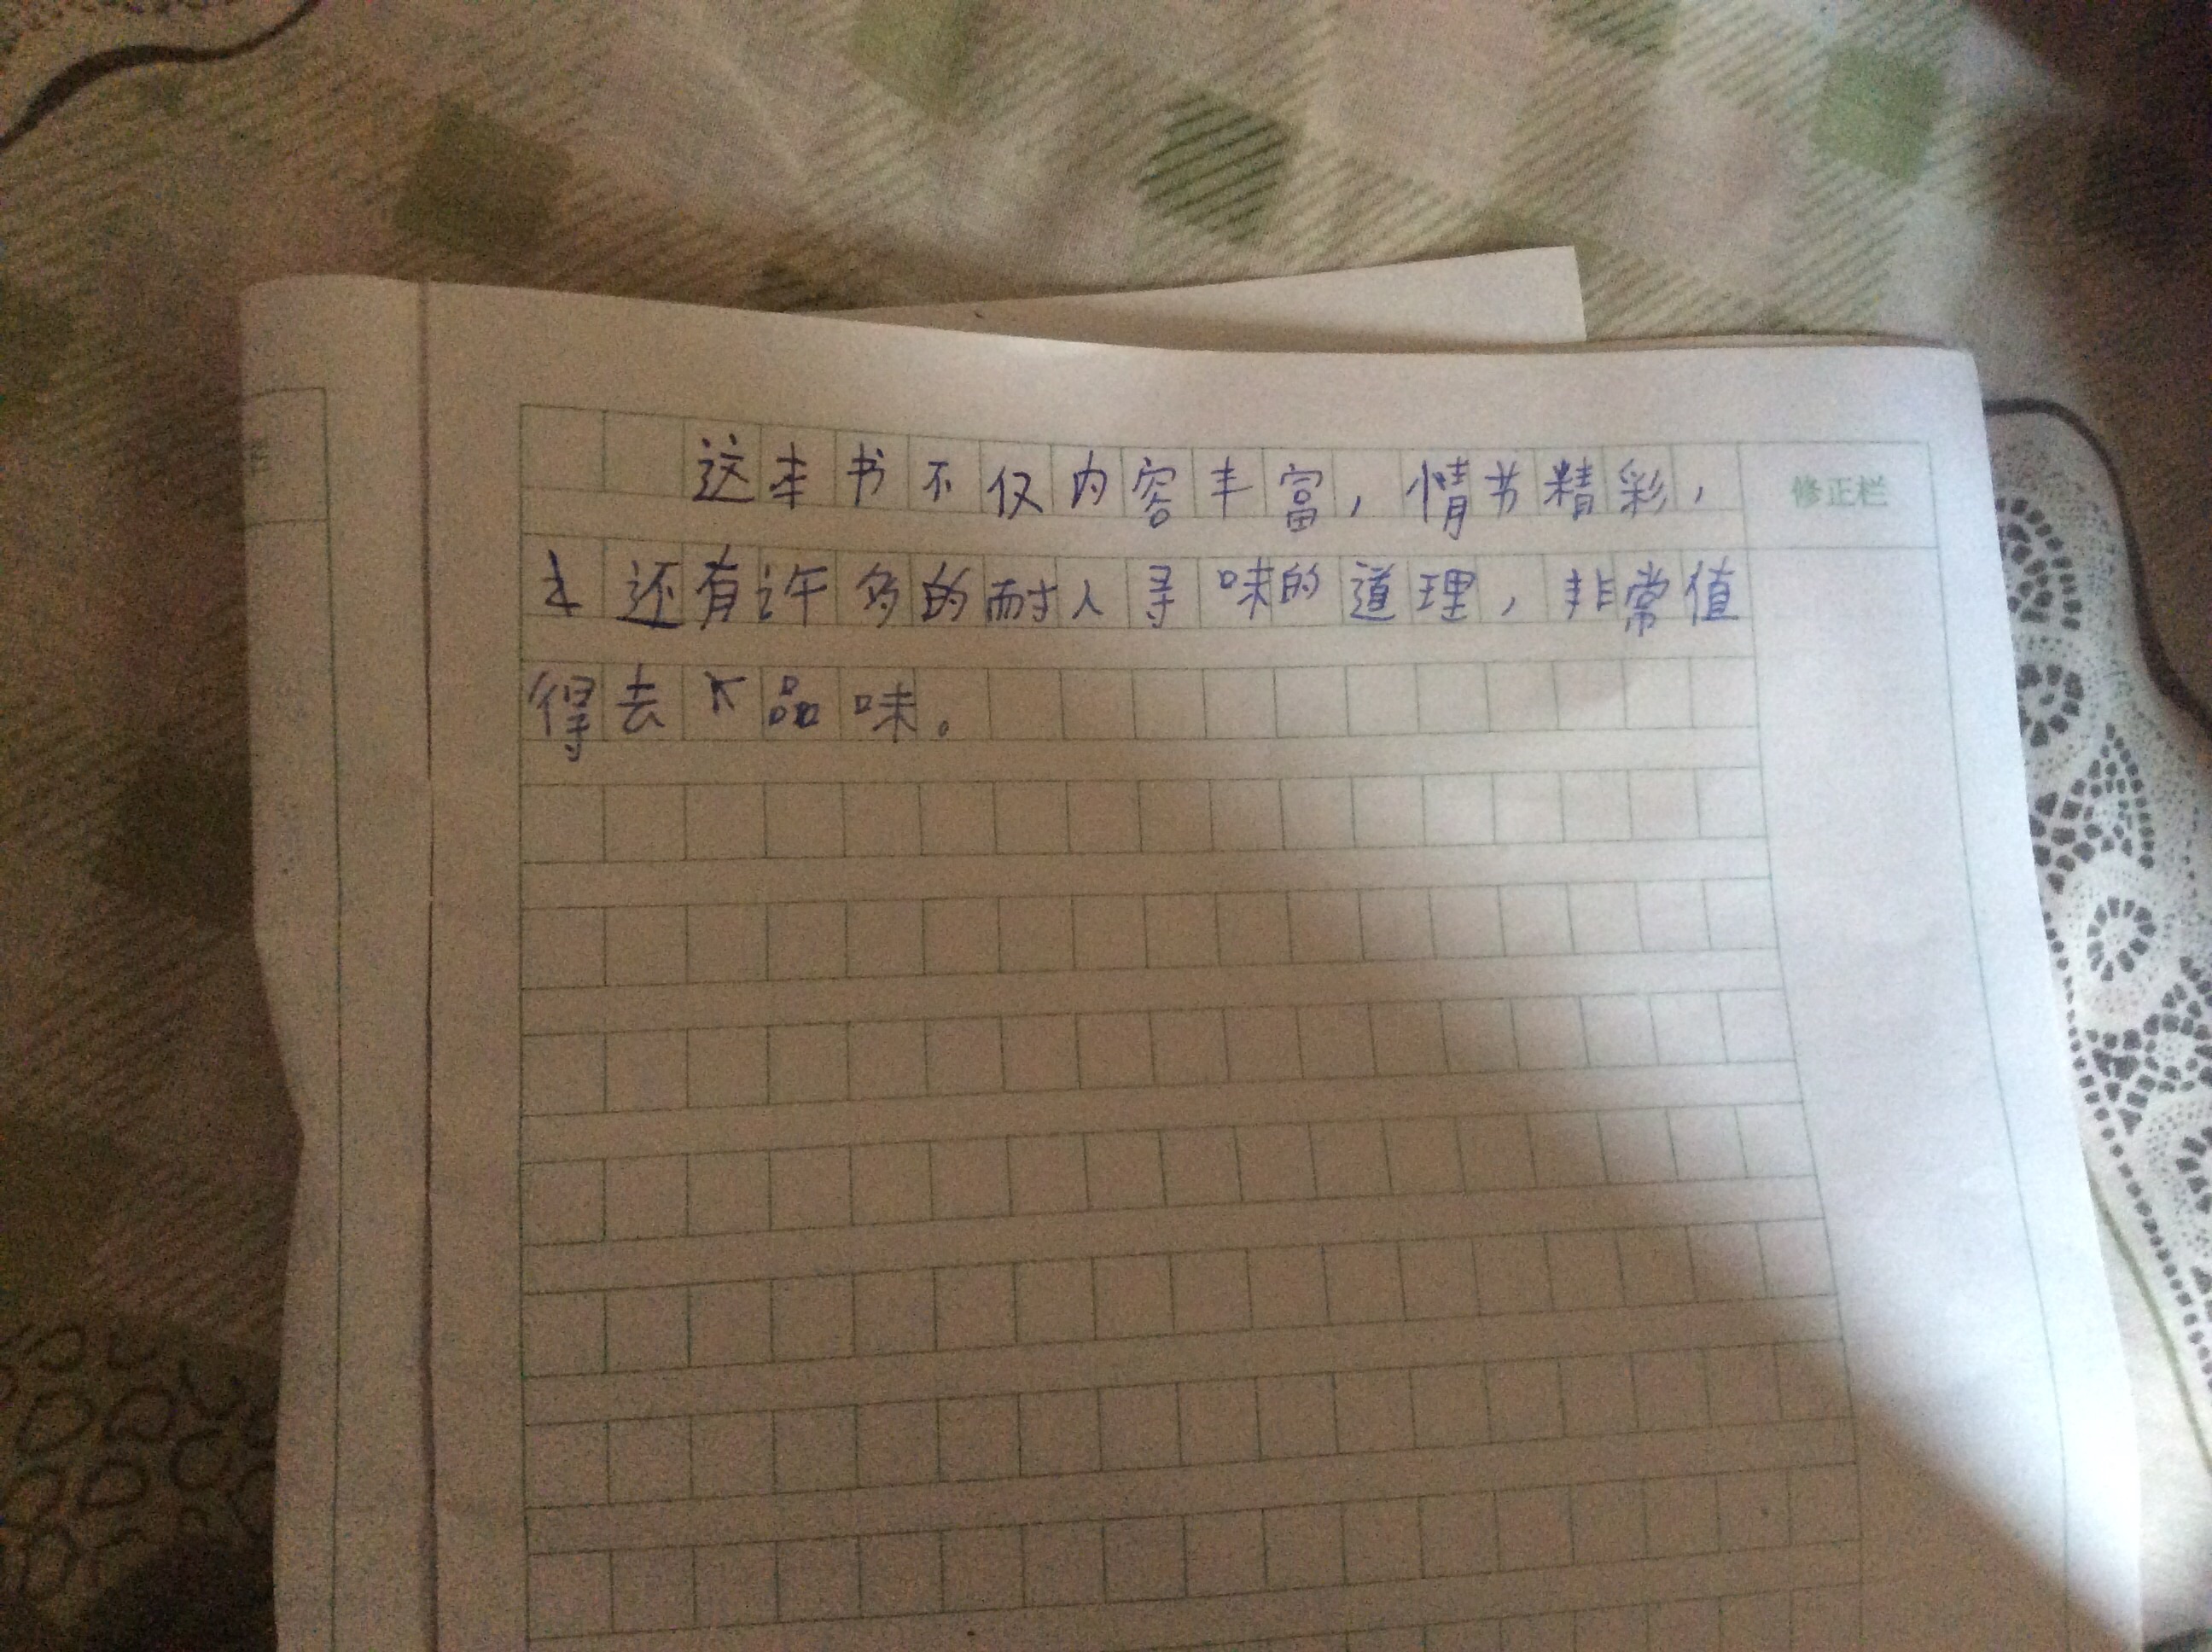 这本书不仅内容丰富，情节精彩，
修正栏
还有许多的耐人寻味的道理，非常值
得去品味。